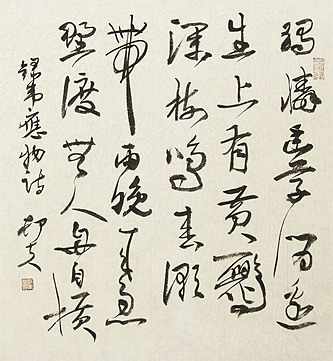 獨憐幽草澗邊
生上有黃鸝
深樹鳴春潮
帶雨晚來急
野渡無人舟自橫
錄韋應物詩